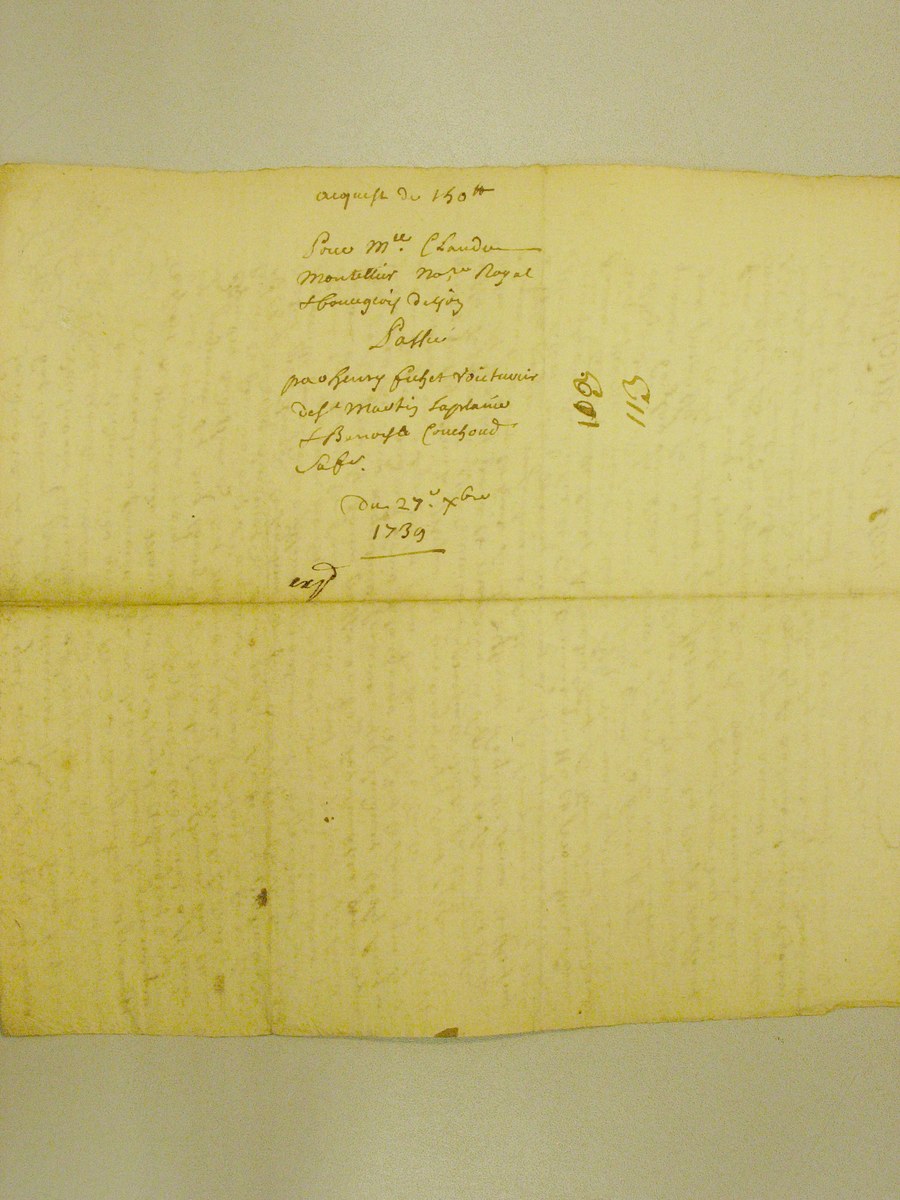 acquest de 150ᵗᵗ
Pour Mʳᵉ. Claude
Montellier noʳᵉ Royal
& bourgeois de Lion
Passé
par henry fichet voiturier
de Sᵗ Martin Laplaine
& Benoiste Couchoud
Sa fe.
Du 27ᵉ. Xbre
1739
exp̄d
109
113